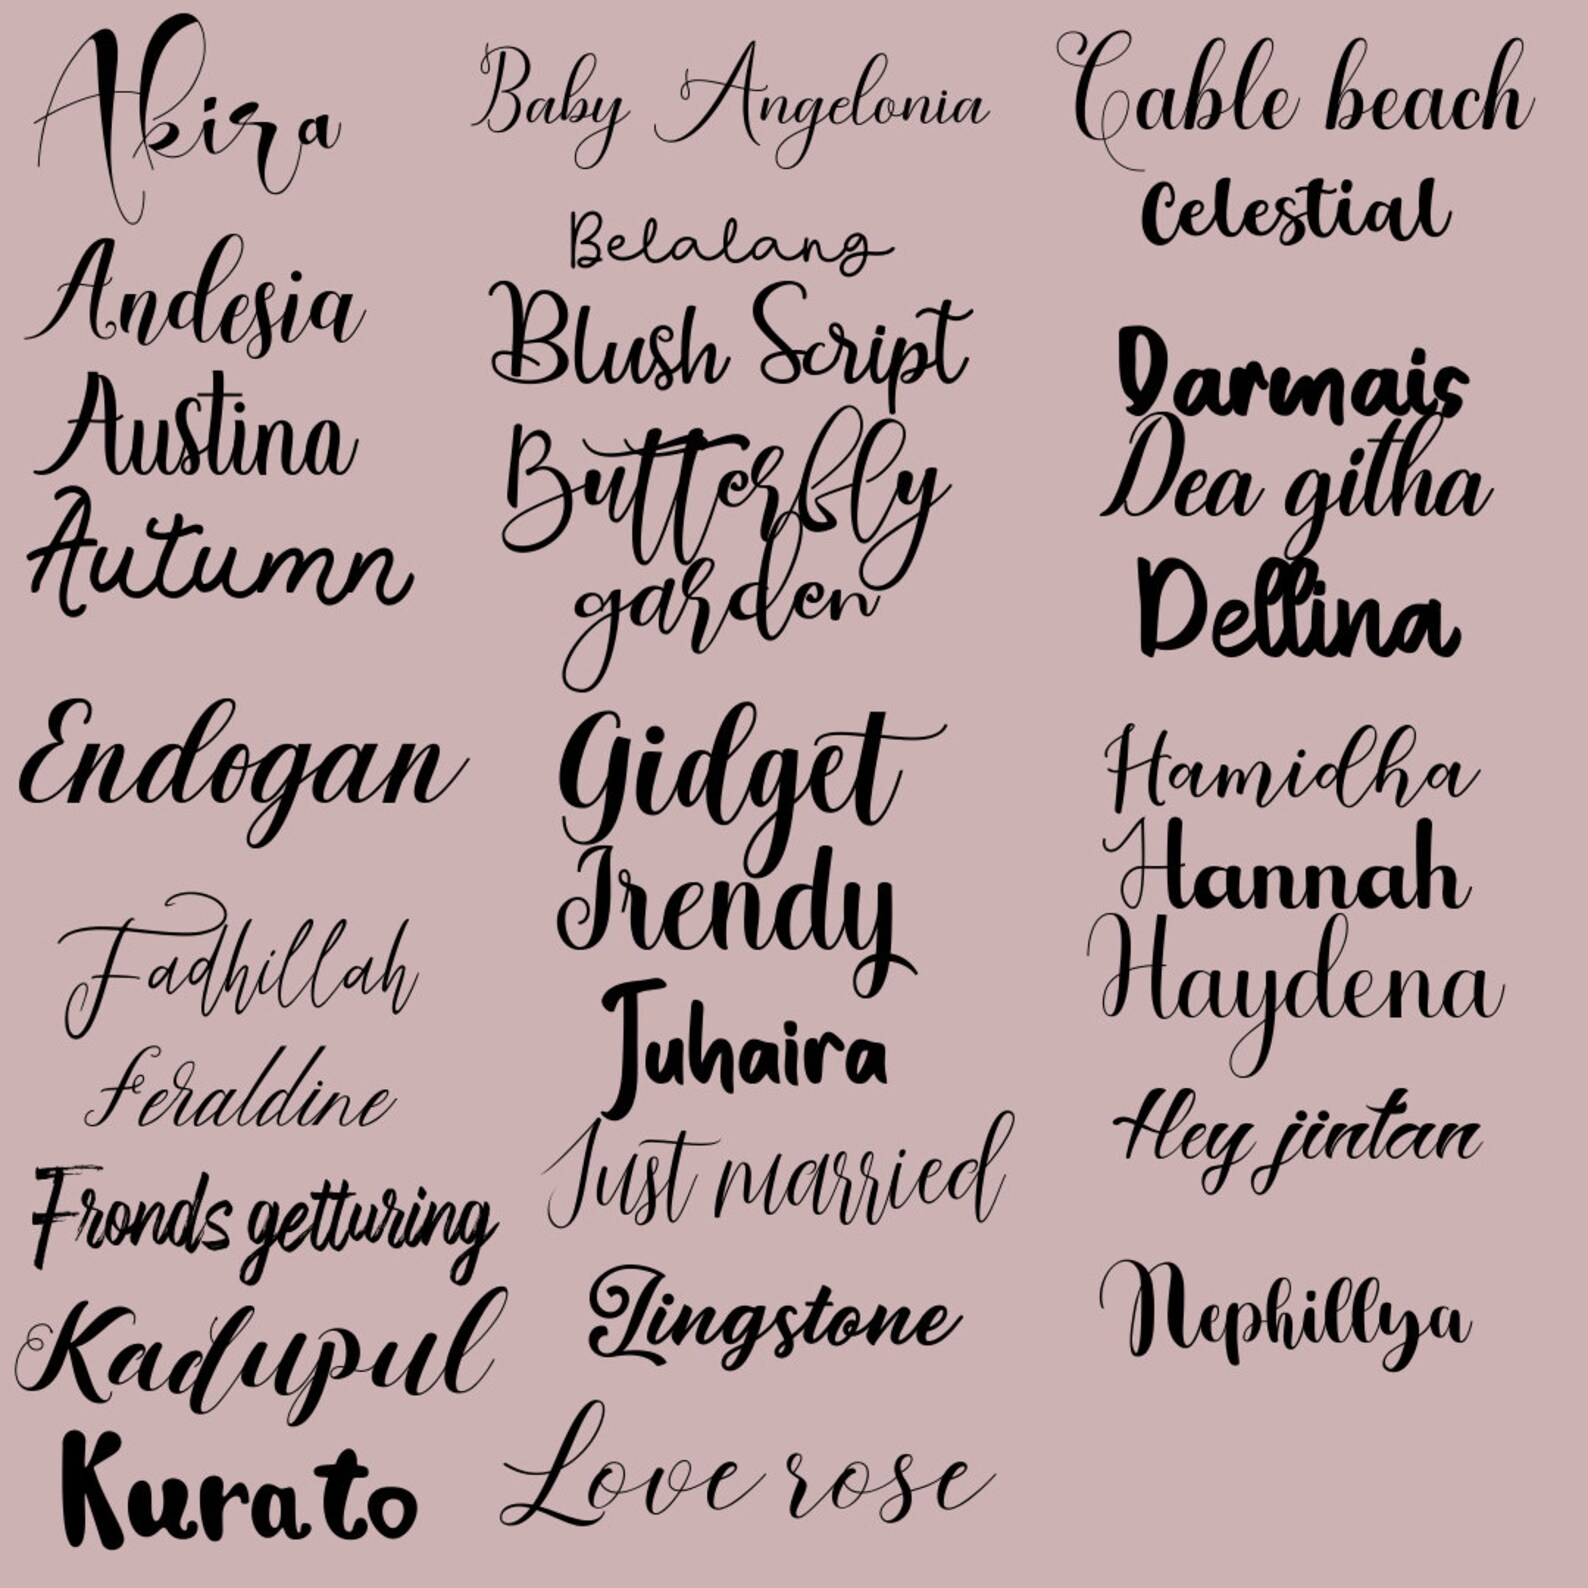 Akira
Andesia
Austina
Autumn
Endogan
Fadhillah
feraldine
Fronds getturing
Kadupul
Kurato
Baby Angelonia
Belalang
Blush Script
Butterfly
garden
Gidget
Trendy
Juhaira
Just married
Lingstone
Love rose
Cable beach
Celestial
Darmais
Dea githa
Dellina
Hamidha
Hannah
Haydena
Hey jintan
Nephillya